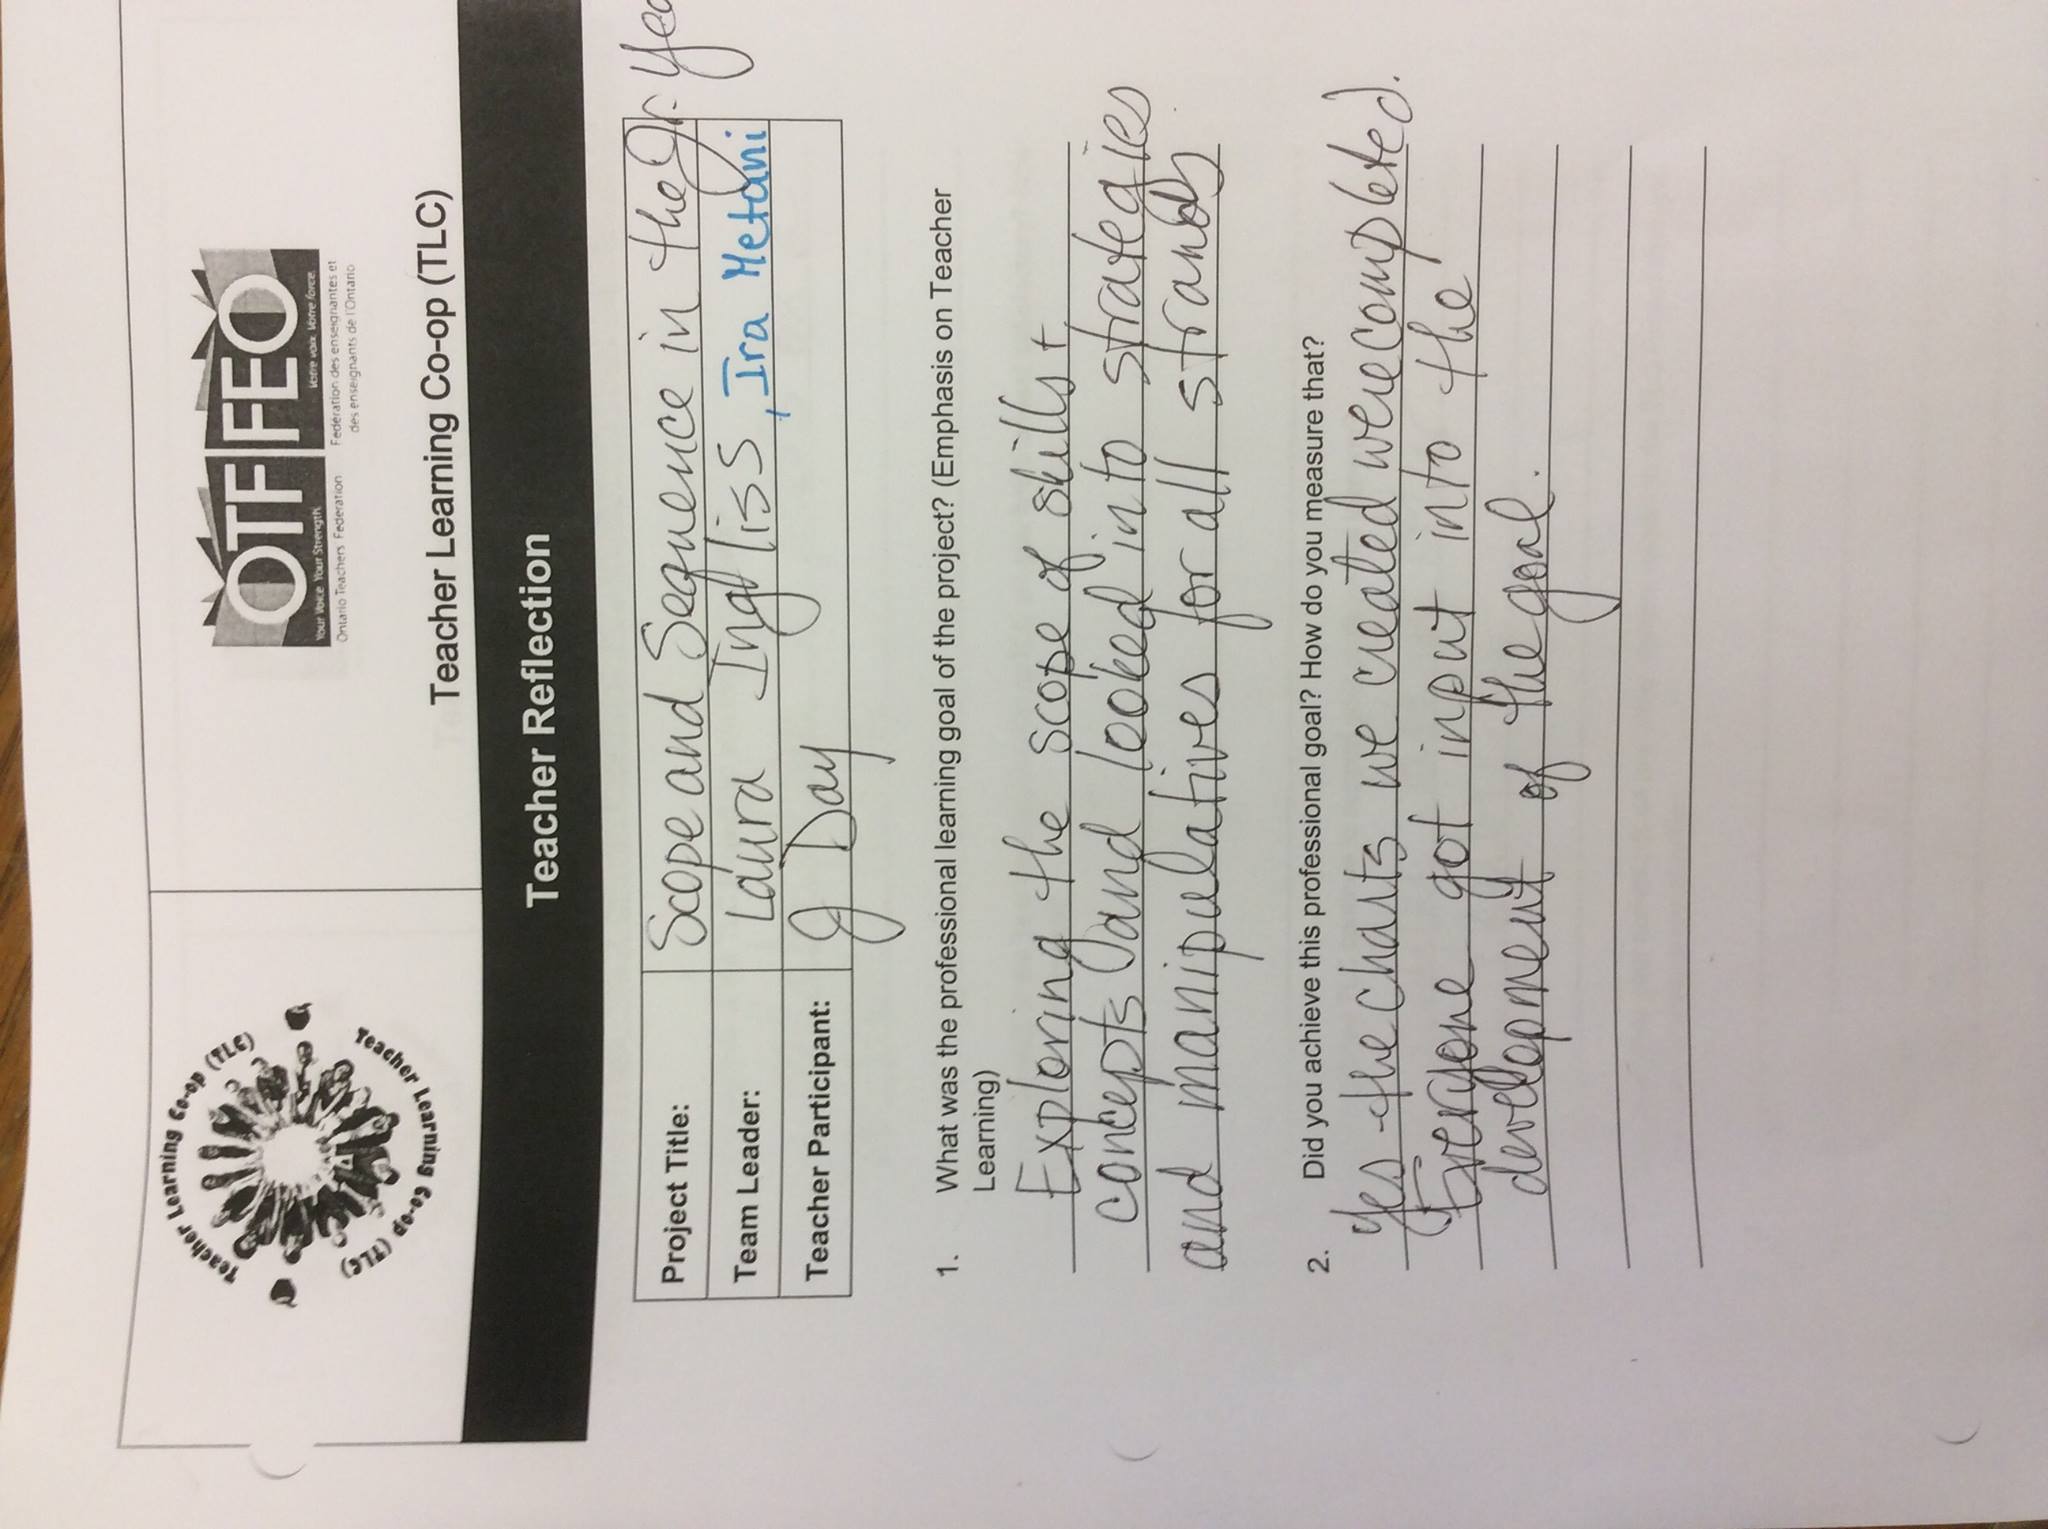 Teacher Learning Co-op (TLC)
Teacher Learning Co-op (TLC)
OTF FEO
Your Voice. Your Strength. Votre voix. Votre force.
Ontario Teachers' Federation
Fédération des enseignantes et
des enseignants de l'Ontario
Teacher Learning Co-op (TLC)
Teacher Reflection
Project Title: Scope and Sequence in the Jr. Yea
Team Leader: Laura Ingliss, Ira Metani
Teacher Participant: J Day
1. What was the professional learning goal of the project? (Emphasis on Teacher
Learning)
Exploring the scope of skills +
concepts and looked into strategies
and manipulatives for all strands
2. Did you achieve this professional goal? How do you measure that?
Yes - the charts we created were completed.
Everyone got input into the
development of the goal.